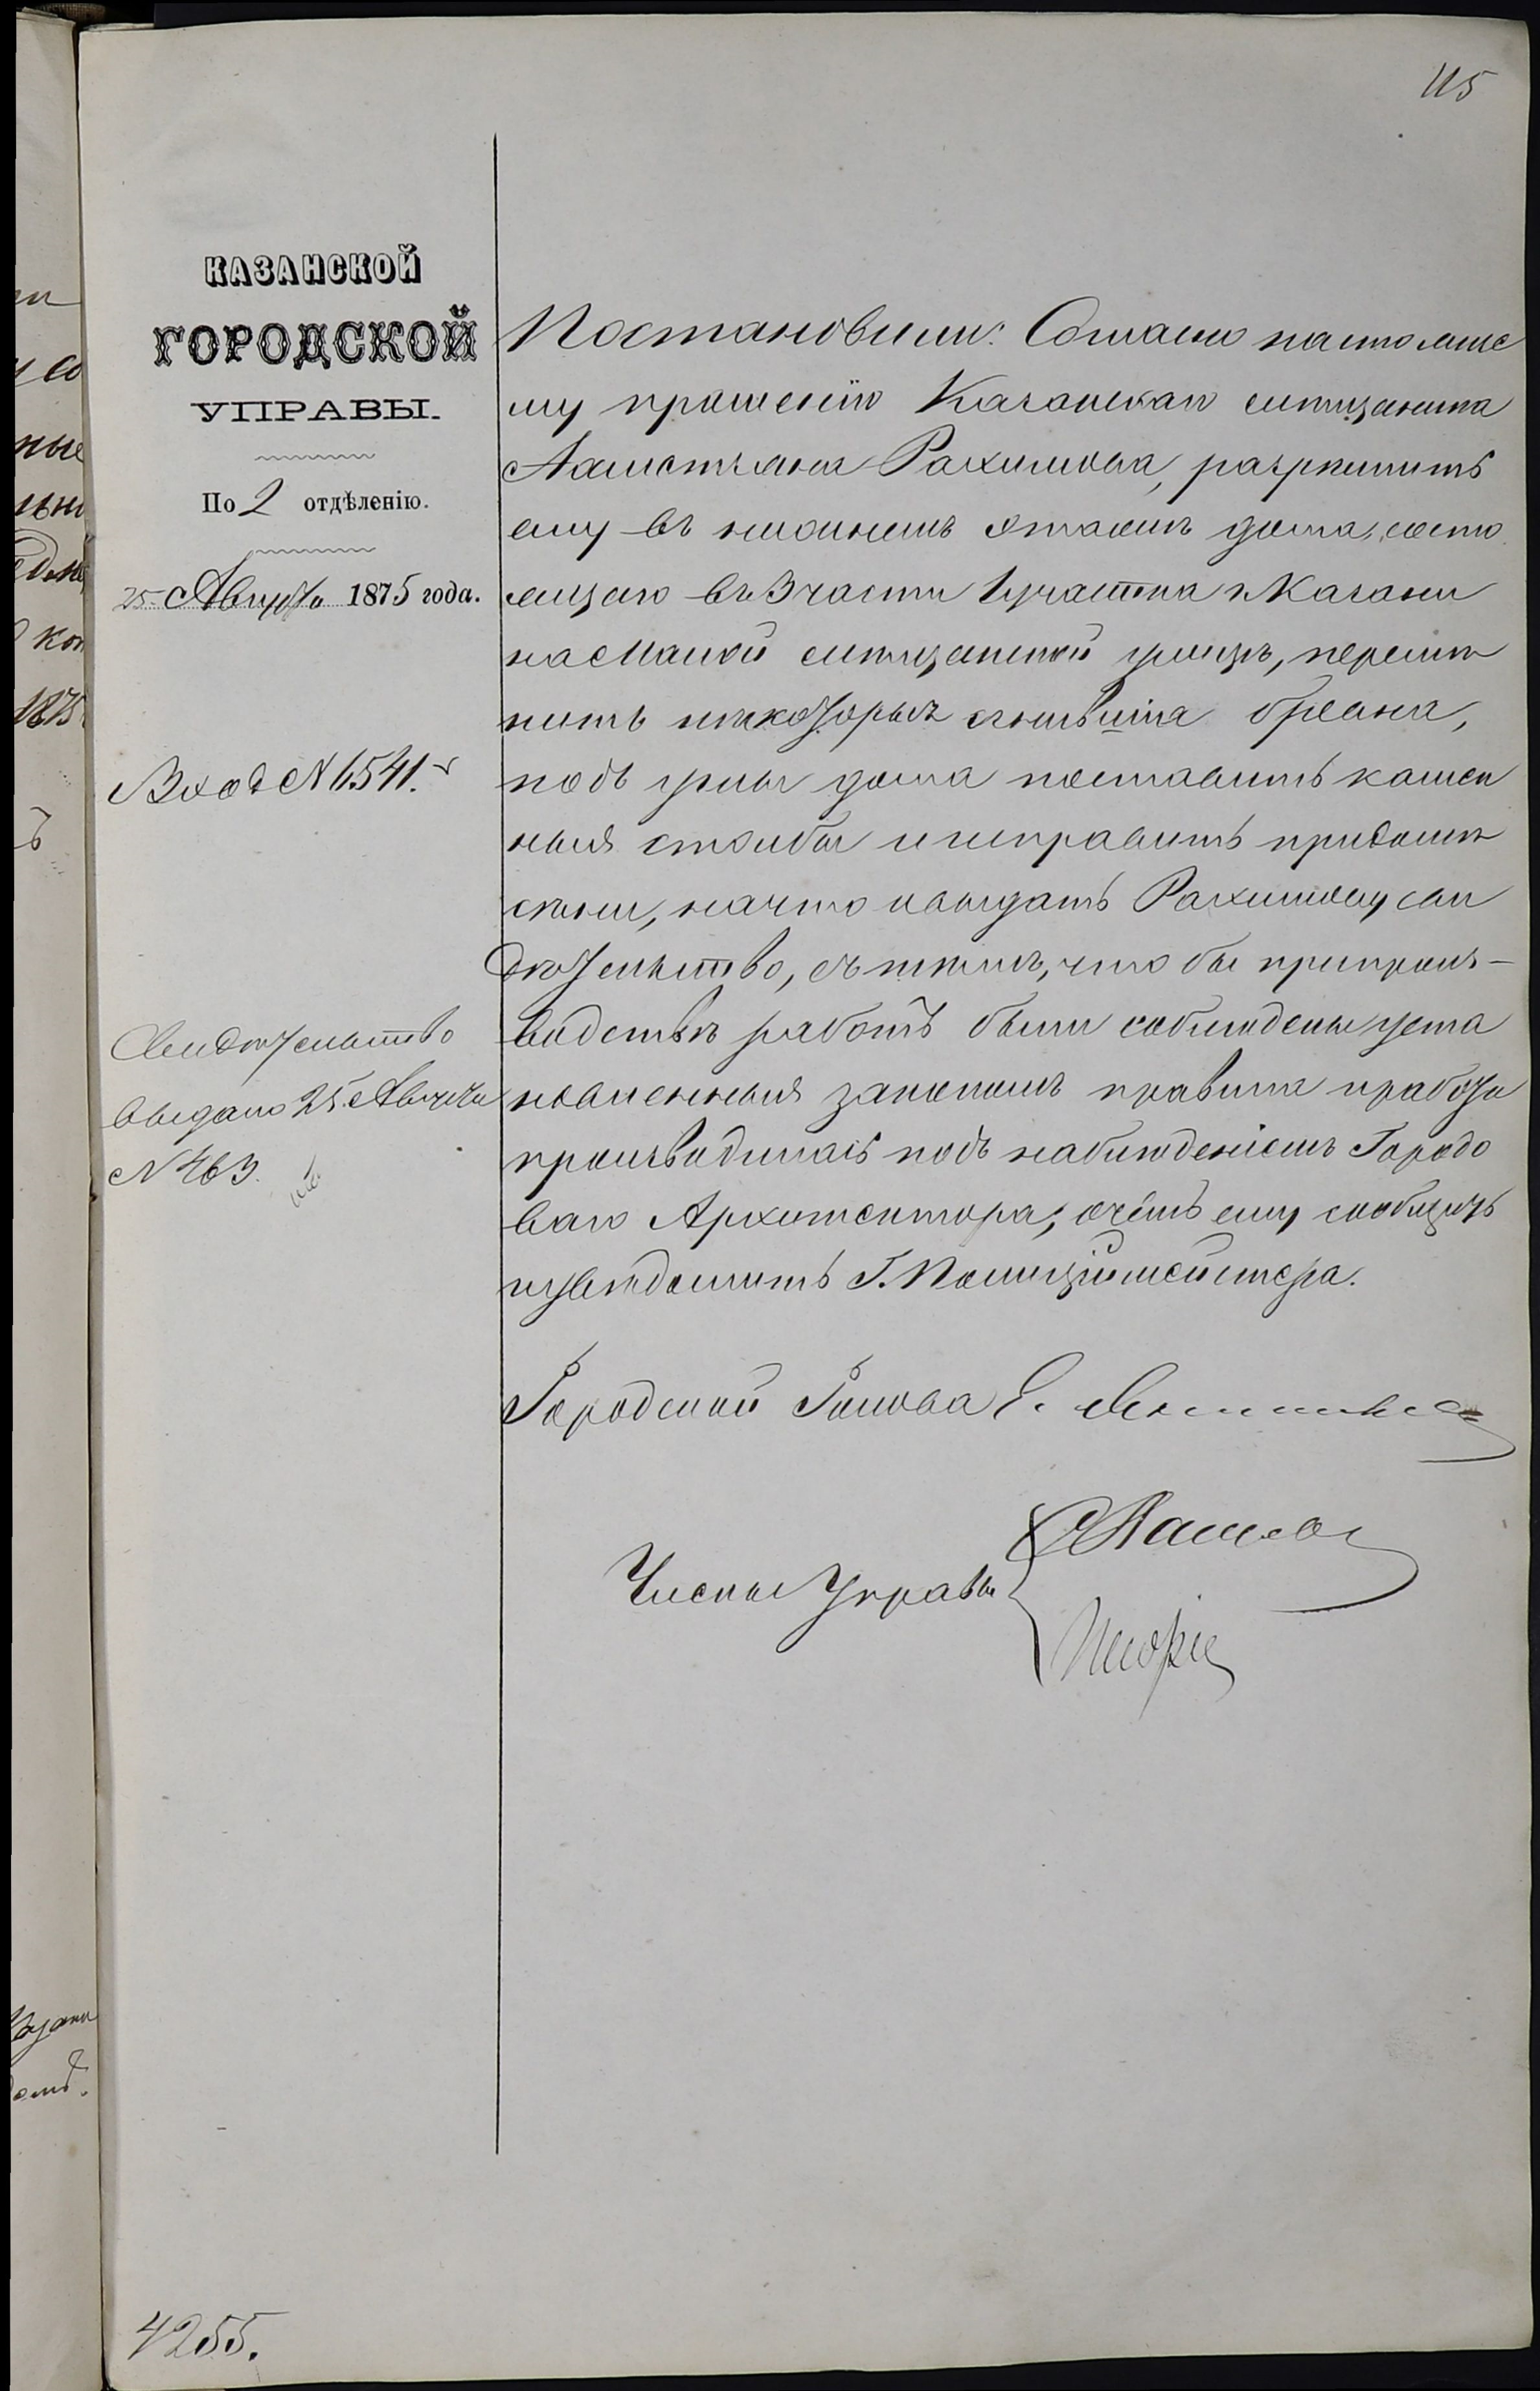 115
КАЗАНСКОЙ
ГОРОДСКОЙ
УПРАВЫ.
По 2 отдѣленію.
25 Августа 1875 года.
Вход N 6541.
Свидѣтельство
выдано 25 Августа
N 463.
Постановили: Согласно настояще
му прошенію Казанскаго мѣщанина
Рахимова, разрѣшить
ему въ нижнемъ этажѣ дома, состо
ящаго въ 3 части 1 участка г. Казани
на Малой мѣщанской улицѣ, перемѣ
нить нѣкоторыя сгнившія бревна,
подъ углы дома поставить камен
ныя столбы и исправить
на что и выдать Рахимову сви
дѣтельство, съ тѣмъ, что бы при произ-
водствѣ работъ были соблюдены уста
новленныя закономъ правила и работы
производились подъ наблюденіемъ Городо
ваго Архитектора, о чемъ ему сообщить
и увѣдомить Г. Полиціймейстера.
Городской Голова
Члены Управы
4255.